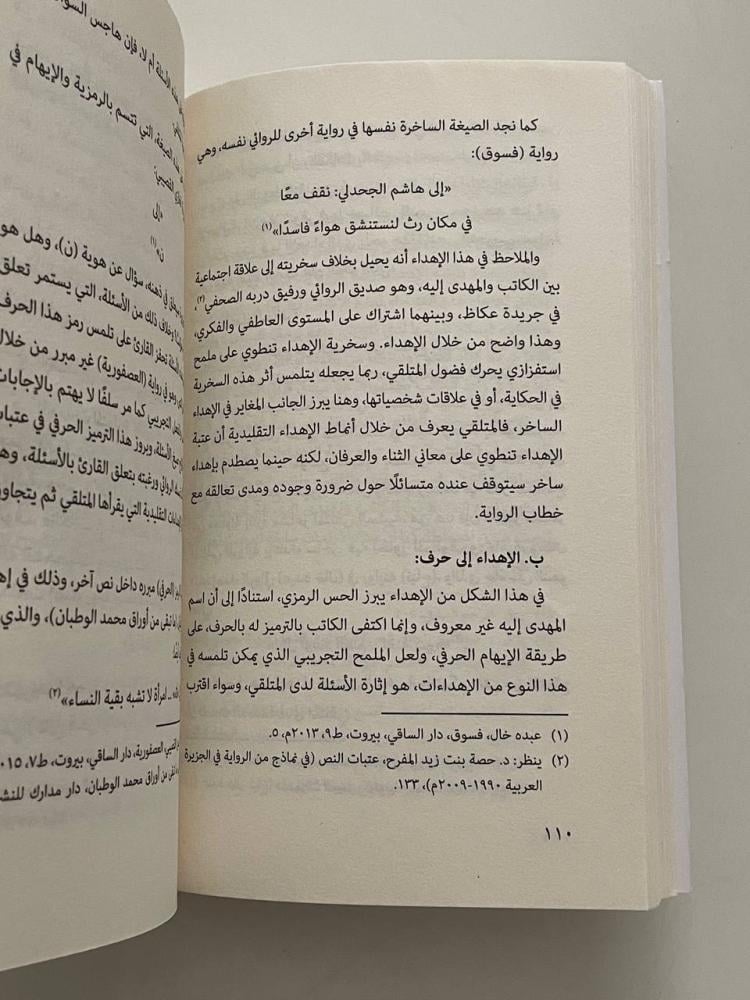 كما نجد الصيغة الساخرة نفسها في رواية أخرى للروائي نفسه، وهي
رواية (فسوق):
«إلى هاشم الجحدلي: نقف معًا
في مكان رث لنستنشق هواءً فاسدًا»(١)
والملاحظ في هذا الإهداء أنه يحيل بخلاف سخريته إلى علاقة اجتماعية
بين الكاتب والمهدى إليه، وهو صديق الروائي ورفيق دربه الصحفي(٢)،
في جريدة عكاظ، وبينهما اشتراك على المستوى العاطفي والفكري،
وهذا واضح من خلال الإهداء. وسخرية الإهداء تنطوي على ملمح
استفزازي يحرك فضول المتلقي، ربما يجعله يتلمس أثر هذه السخرية
في الحكاية، أو في علاقات شخصياتها، وهنا يبرز الجانب المغاير في الإهداء
الساخر، فالمتلقي يعرف من خلال أنماط الإهداء التقليدية أن عتبة
الإهداء تنطوي على معاني الثناء والعرفان، لكنه حينما يصطدم بإهداء
ساخر سيتوقف عنده متسائلًا حول ضرورة وجوده ومدى تعالقه مع
خطاب الرواية.
ب. الإهداء إلى حرف:
في هذا الشكل من الإهداء يبرز الحس الرمزي، استنادًا إلى أن اسم
المهدى إليه غير معروف، وإنما اكتفى الكاتب بالترميز له بالحرف، على
طريقة الإيهام الحرفي، ولعل الملمح التجريبي الذي يمكن تلمسه في
هذا النوع من الإهداءات، هو إثارة الأسئلة لدى المتلقي، وسواء اقترب
(١) عبده خال، فسوق، دار الساقي، بيروت، ط٩، ٢٠١٣م، ٥.
(٢) ينظر: د. حصة بنت زيد المفرح، عتبات النص (في نماذج من الرواية في الجزيرة
العربية ١٩٩٠-٢٠٠٩م)، ١٣٣.
١١٠
الأسئلة أم لا، فإن هاجس
الصيغة، التي تتسم بالرمزية والإيهام في
«إلى
ن»(١)
في ذهنه، سؤال عن هوية (ن)، وهل هو
وخلاف ذلك من الأسئلة، التي يستمر تعلق
تحفز القارئ على تلمس رمز هذا الحرف
وهو في رواية (العصفورية) غير مبرر من خلال
التجريبي كما مر سلفًا لا يهتم بالإجابات
الأسئلة، ويروز هذا الترميز الحرفي في عتبات
الروائي ورغبته بتعلق القارئ بالأسئلة، وهو
التقليدية التي يقرأها المتلقي ثم يتجاوز
(الحرفي) مبرره داخل نص آخر، وذلك في
تبقى من أوراق محمد الوطبان)، والذي
امرأة لا تشبه بقية النساء»(٢)
العصفورية، دار الساقي، بيروت، ط٧،
من أوراق محمد الوطبان، دار مدارك